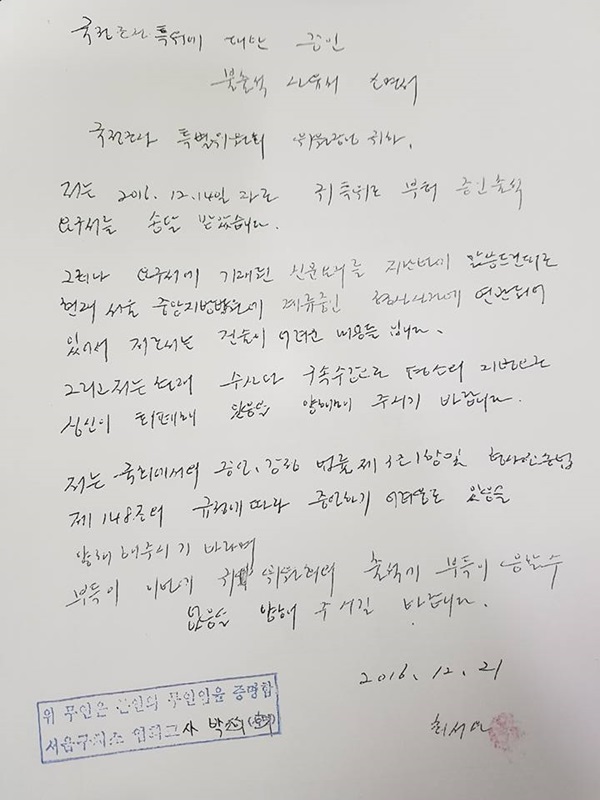 국정조사 특위에 대한 증인
불출석 사유서 소명서
국정조사 특별위원회 위원장님 귀하.
저는 2016. 12. 14일 자로 귀 특위로 부터 증인출석
요구서를 송달 받았습니다.
그러나 요구서에 기재된 신문요지를 지난번에 말씀드린대로
현재 서울 중앙지방법원에 계류중인 형사사건에 연관되어
있어서 저로서는 진술이 어려운 내용들 입니다.
그리고 저는 현재 수사와 구속수감으로 평소의 지병으로
심신이 회폐해 있음을 양해해 주시기 바랍니다.
저는 국회에서의 증언, 감정 법률 제 3조 1항 및 형사소송법
제 148조의 규정에 따라 증언하기 어려물로 있음을
양해 해주시기 바라며
부득이 이번 귀 위원회의 출석기 부득이 응할수
없음을 양해 주시길 바랍니다.
2016. 12. 21
최서원
위 무인은 본인의 무인임을 증명함
서울구치소 교사 박